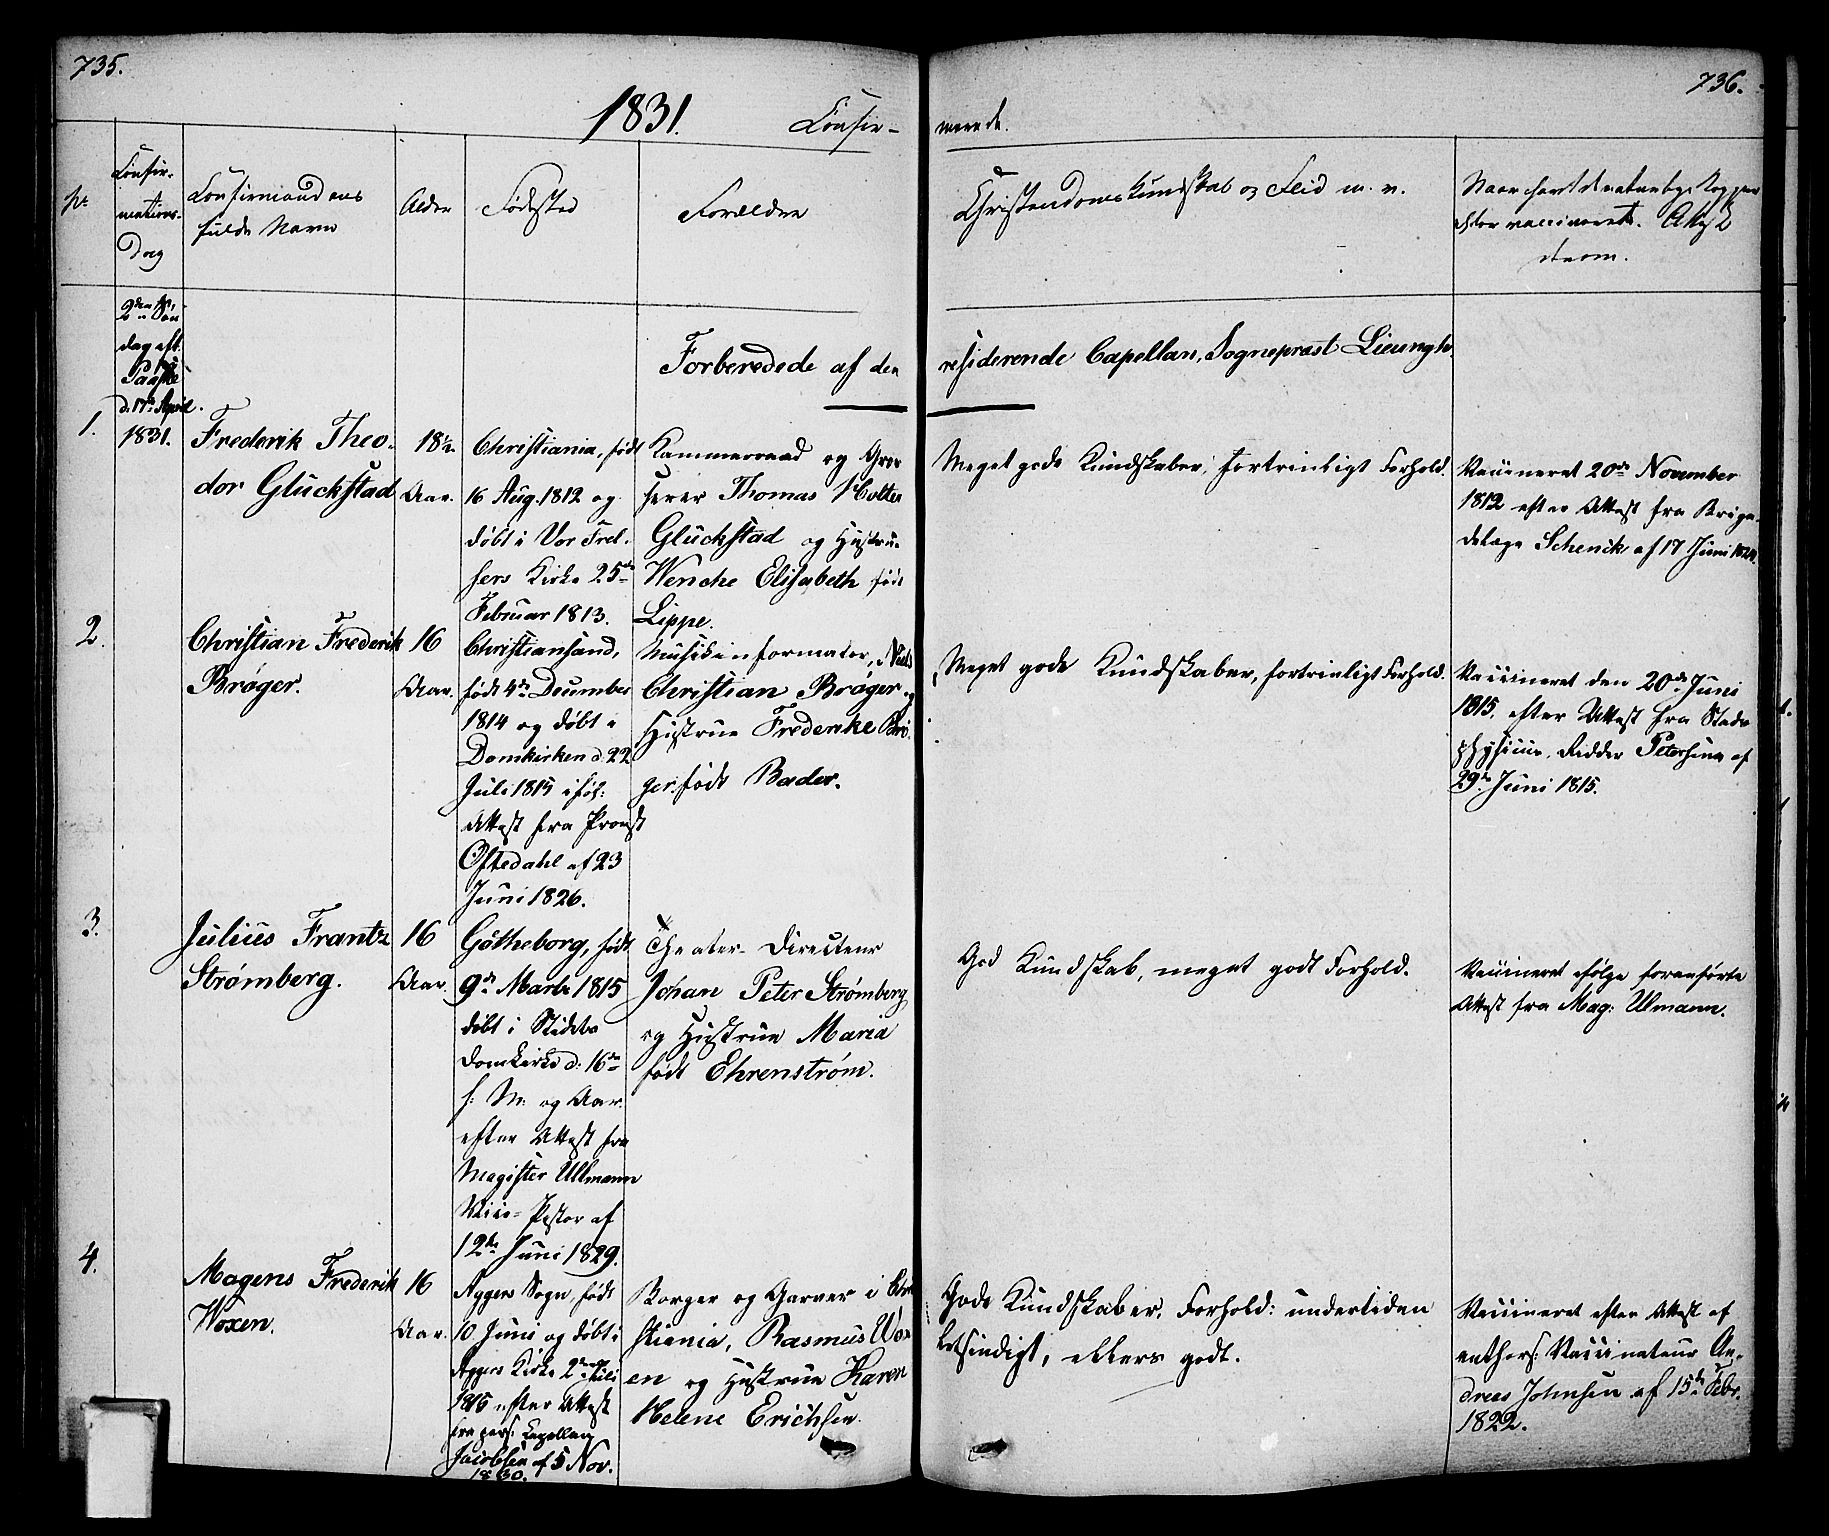 735.
736.
1831.
Confir-
merede.
Nr
Confir-
mations-
Dag
Confirmandens
fulde Navn
Alder
Fødested
Forældre
Christendoms Kundskab og Flid m. v.
Naar havt de naturlige Kopper
eller vaccinerede. Attest
derom.
2den Søn
dag eft:
Paaske
d. 17de April
1831.
Forberedede af den
residerende Capellan, Sognepræst Lieungh.
1.
Frederik Theo-
dor Gluckstad
18½
Aar.
Christiania, født
16 Aug. 1812 og
døbt i Vor Frel-
sers Kirke 25de
Februar 1813.
Kammerraad og Gros
serer Thomas Holter
Gluckstad og Hustrue
Wenche Elisabeth født
Lippe.
Meget gode Kundskaber, fortrinligt Forhold.
Vaccineret 20de November
1812 efter Attest fra Briga-
delæge Schenck af 17 Juni
2.
Christian Frederik
Brøger.
16
Aar.
Christiansand,
født 4de December
1814 og døbt i
Domkirken d. 22
Juli 1815 iføl:
Attest fra Provst
Oftedahl af 23
Juni 1826.
Musikinformator, Niels
Christian Brøger og
Hustrue Frederike Brø-
ger født Bader.
Meget gode Kundskaber, fortrinligt Forhold.
Vaccineret den 20de Juni
1815. efter Attest fra Stads
physicus, Ridder Petersen af
29de Juni 1815.
3.
Julius Frantz
Strømberg.
16
Aar.
Gøtheborg, født
9de Marts 1815
døbt i Stadets
Domkirke d: 16de
s: M: og Aar.
efter Attest fra
Magister Ullmann
Vice-Pastor af
12te Juni 1829.
Theater-Directeur
Johan Peter Strømberg
og Hustrue Maria
født Ehrenstrøm.
God Kundskab, meget godt Forhold.
Vaccineret ifølge foranførte
Attest fra Mag: Ulmann.
4.
Magens Frederik
Woxen.
16
Aar.
Aggers Sogn, født
10 Juni og døbt i
Aggers Kirke 2den Juli
1815 efter Attest
fra pers: Capellan
Jacobsen af 5 Nov.
1830.
Borger og Garver i Chri
stiania, Rasmus Wox
en og Hustrue Karen
Helene Erichsen.
Gode Kundskaber. Forhold: undertiden
letsindigt, ellers godt.
Vaccineret efter Attest af
authors: Vaccinateur An-
dreas Johnsen af 15de Febr.
1822.